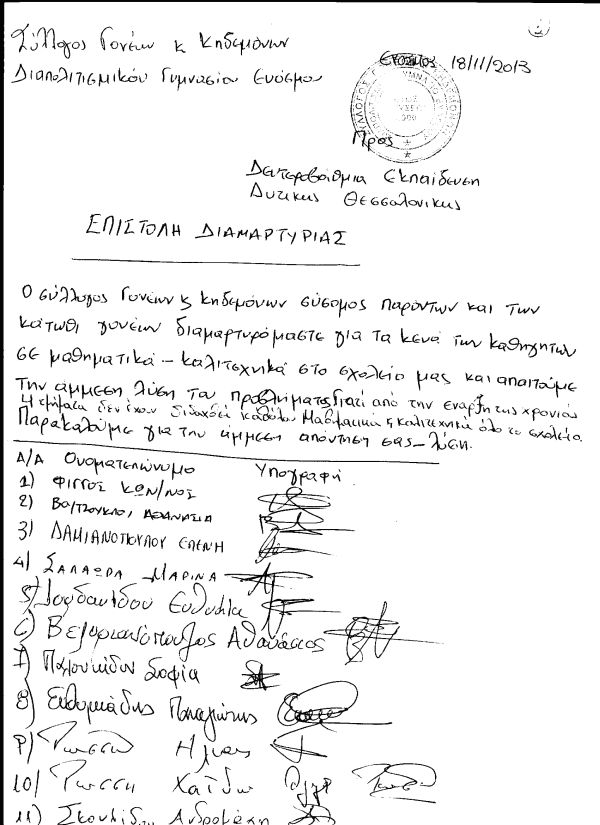 Σύλλογος Γονέων & Κηδεμόνων
Διαπολιτισμικού Γυμνασίου Ευόσμου
Εύοσμος 18/11/2013
Προς
Δευτεροβάθμια Εκπαίδευση
Δυτικης Θεσσαλονικης
ΕΠΙΣΤΟΛΗ ΔΙΑΜΑΡΤΥΡΙΑΣ
Ο σύλλογος Γονέων & κηδεμόνων σύσσομος παρόντων και των
κάτωθι γονέων διαμαρτυρόμαστε για τα κενά των καθηγητών
σε μαθηματικά - καλιτεχνικά στο σχολείο μας και απαιτούμε
Την άμμεση λύση του προβλήματος Γιατί από την εναρξη της χρονιάς
4 τμήματα δεν έχουν διδαχθεί καθόλου Μαθηματικά & καλιτεχνικά όλο το σχολείο.
Παρακαλούμε για την άμμεση απάντηση σας - λύση.
Α/Α Ονοματεπώνυμο Υπογραφή
1) ΦΙΓΓΟΣ ΚΩΝ/ΝΟΣ
2) ΑΘΑΝΑΣΙΑ
3) ΔΑΜΙΑΝΟΠΟΥΛΟΥ ΕΛΕΝΗ
4) ΣΑΛΑΩΡΑ ΜΑΡΙΝΑ
5) Ιορδανίδου Ευθυμία
6) Αθανάσιος
7) Σοφία
8) Ευθυμιάδης Παναγιώτης
9) Ρωσση Ηλιας
10) Ρωσση Χαϊδω
11)